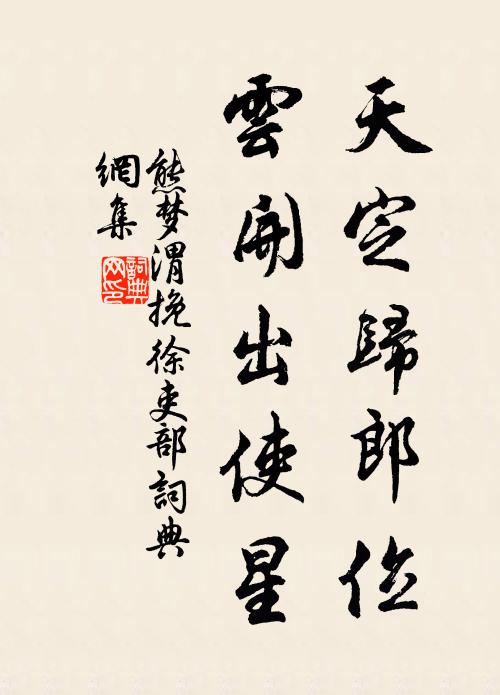 天定歸郎位
雲開出使星
熊梦渭挽徐吏部詞典
網集
詞典
网印